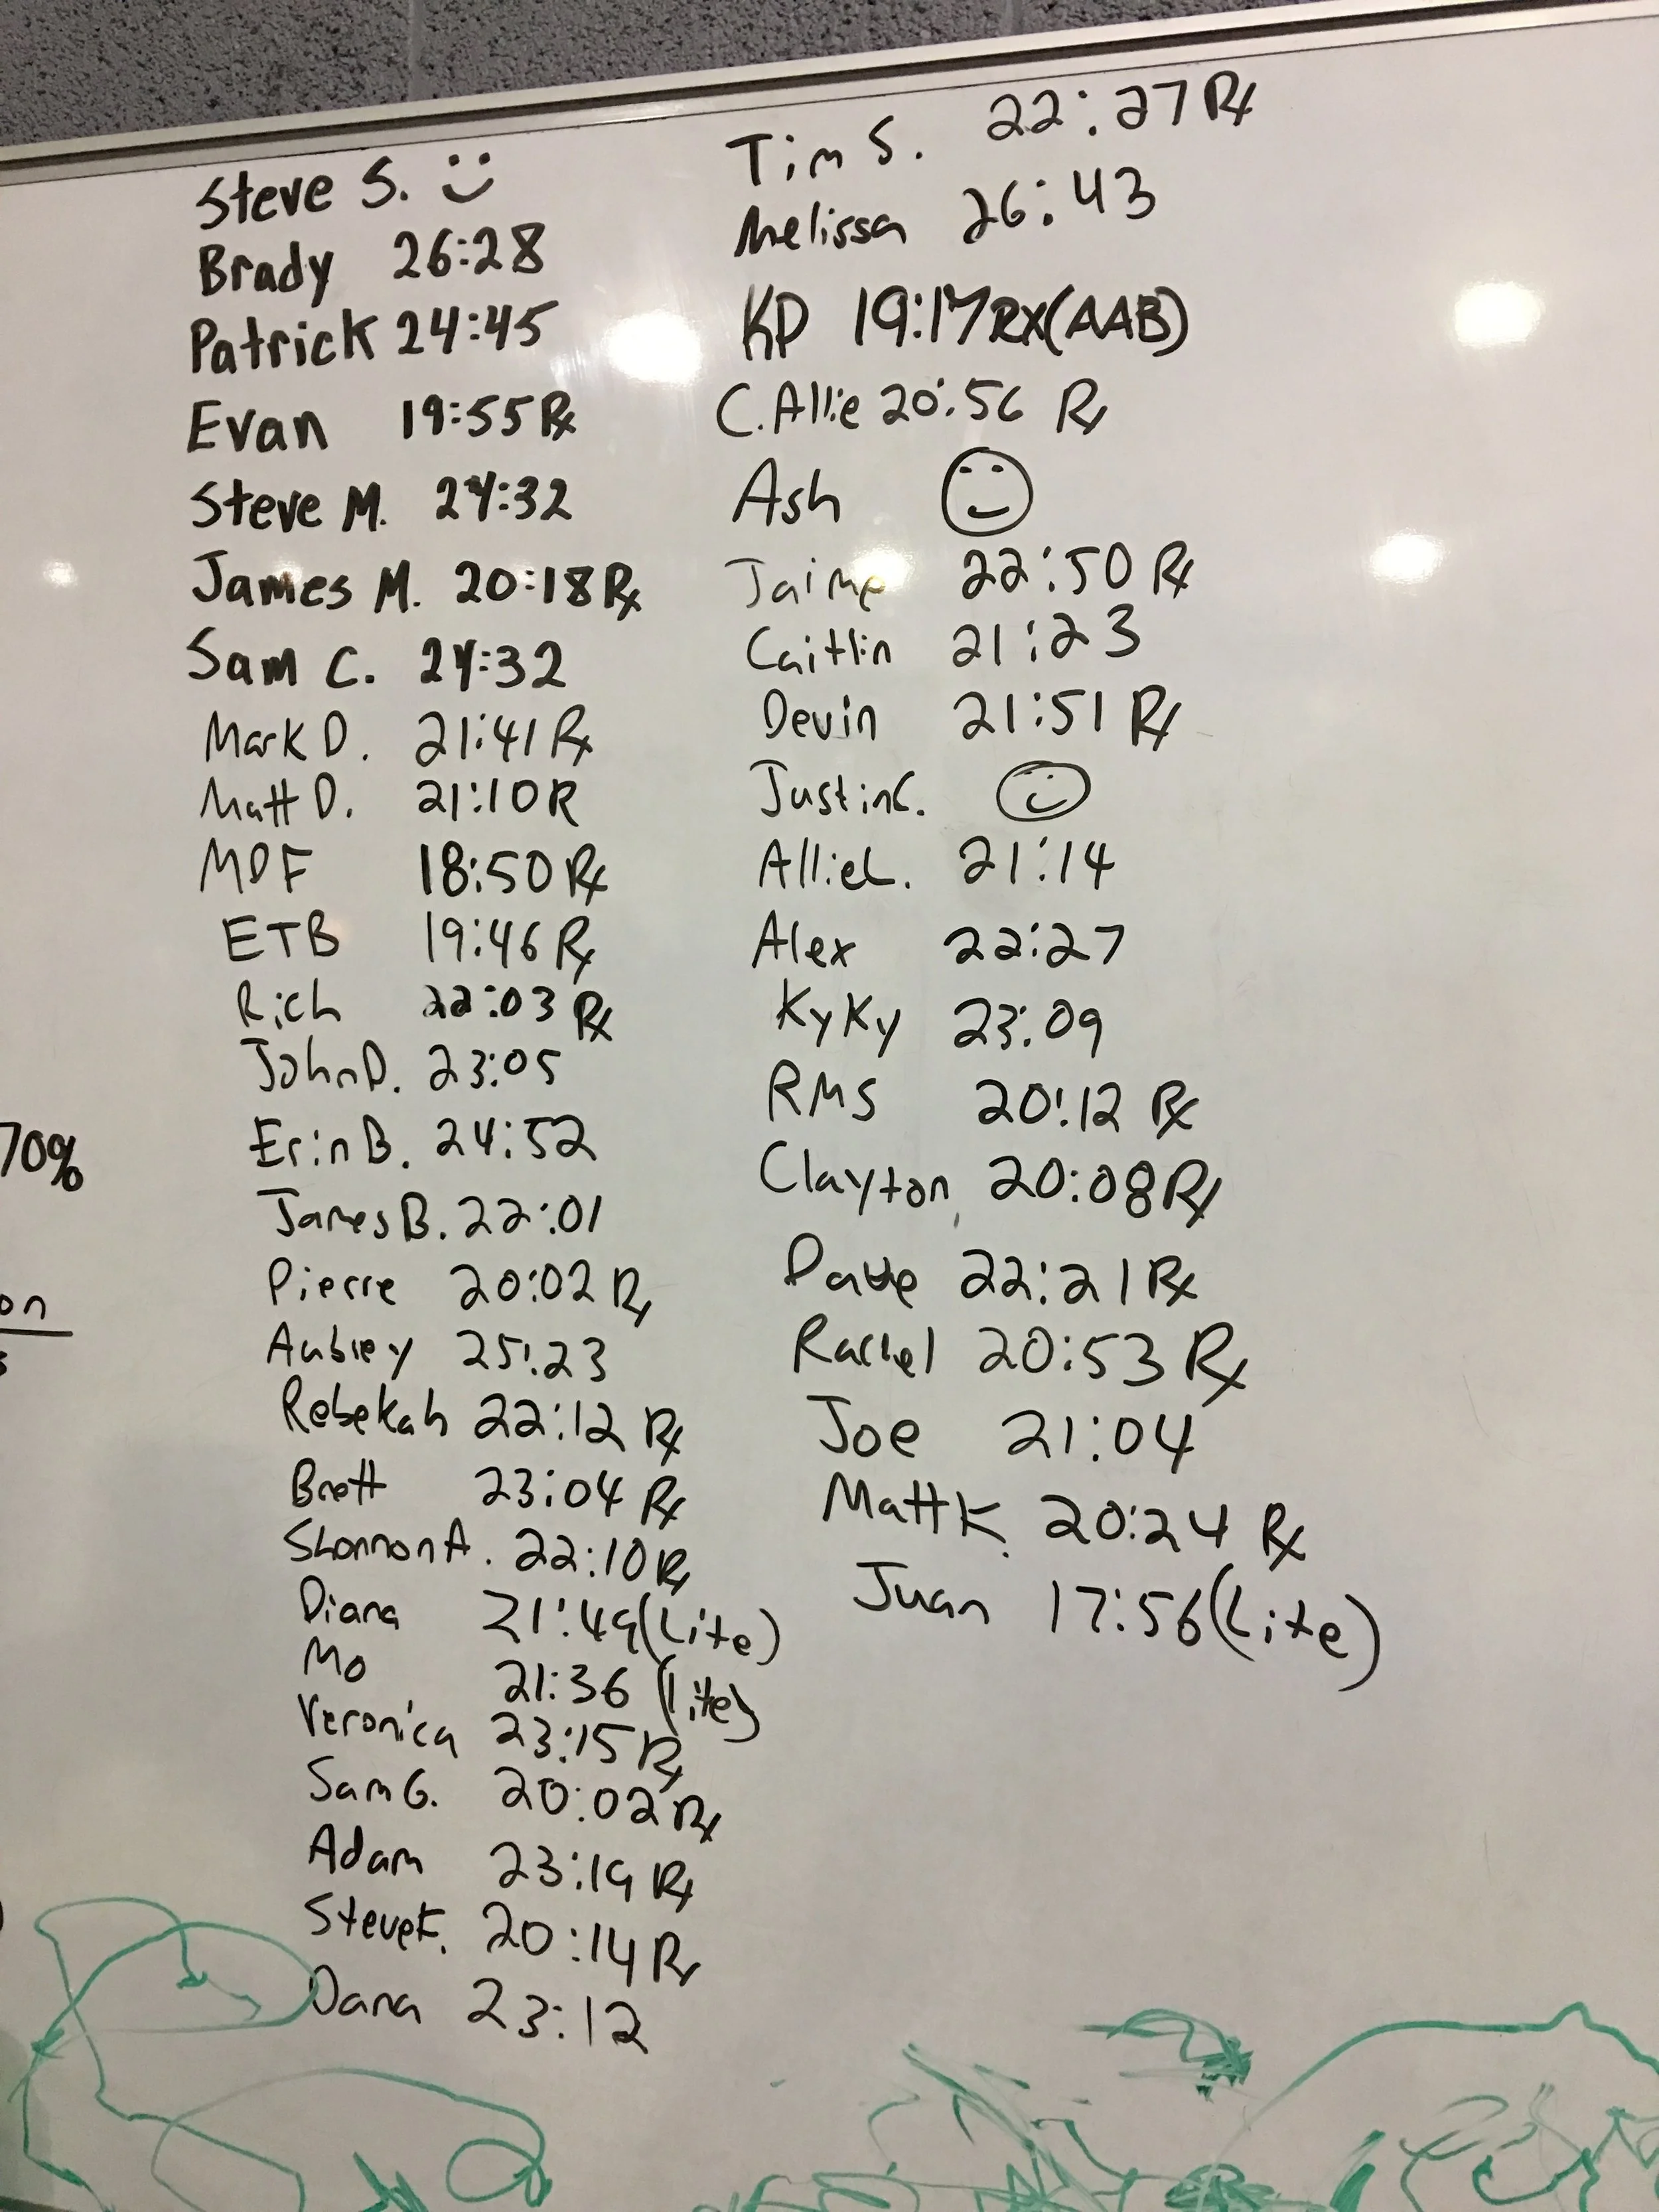 Steve S. :)
Brady 26:28
Patrick 24:45
Evan 19:55 Rx
Steve M. 24:32
James M. 20:18 Rx
Sam C. 24:32
Mark D. 21:41 Rx
Matt D. 21:10 R
MDF 18:50 Rx
ETB 19:46 Rx
Rich 22:03 Rx
John D. 23:05
Erin B. 24:52
James B. 22:01
Pierre 20:02 Rx
Aubrey 25:23
Rebekah 22:12 Rx
Brett 23:04 Rx
Shannon A. 22:10 Rx
Diana 21:49 (Lite)
Mo 21:36 (lite)
Veronica 23:15 Rx
Sam G. 20:02 Rx
Adam 23:19 Rx
Steve F. 20:14 Rx
Dana 23:12
Tim S. 22:27 Rx
Melissa 26:43
KP 19:17 RX (AAB)
C. Allie 20:56 Rx
Ash
Jaime 22:50 Rx
Caitlin 21:23
Devin 21:51 Rx
Justin C.
Allie L. 21:14
Alex 22:27
KyKy 23:09
RMS 20:12 Rx
Clayton 20:08 Rx
Dave 22:21 Rx
Rachel 20:53 Rx
Joe 21:04
Matt K. 20:24 Rx
Juan 17:56 (Lite)
70%
on